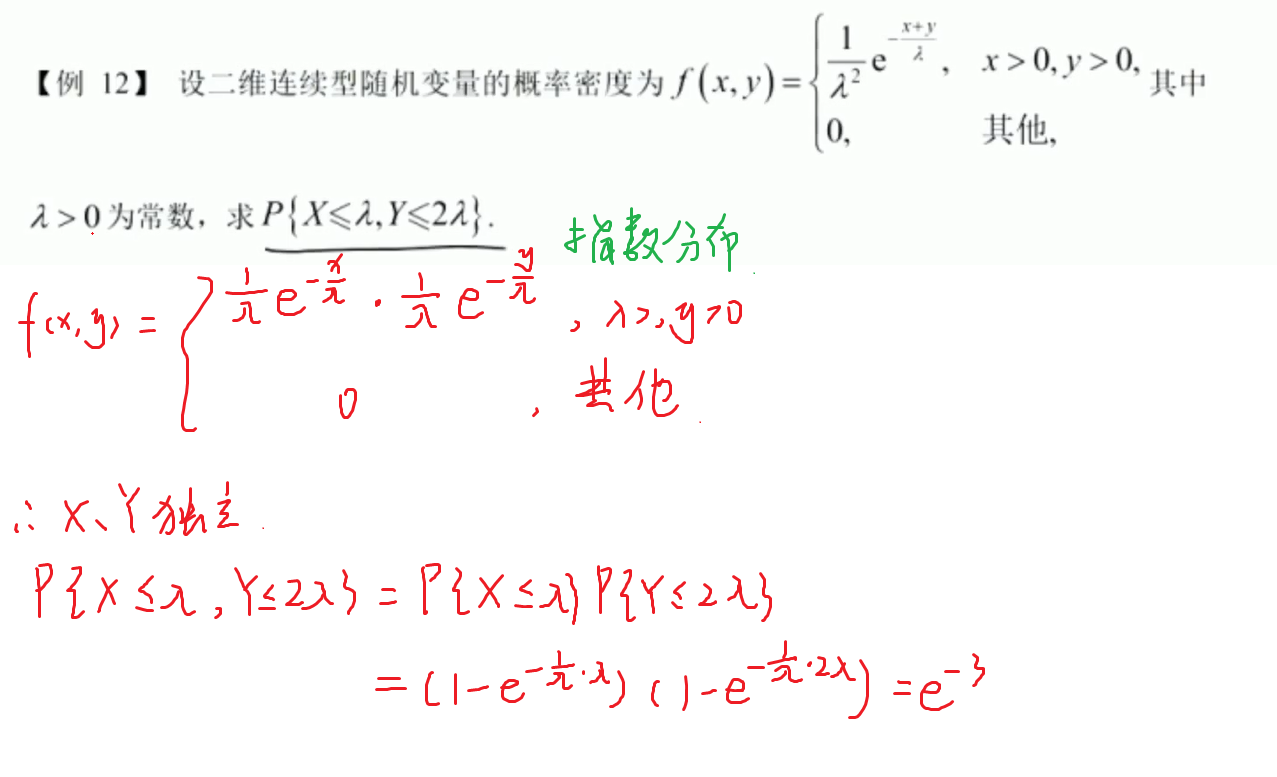 【例 12】 设二维连续型随机变量的概率密度为 f(x,y)={ 1/λ² e^{-(x+y)/λ}, x>0,y>0, 0, 其他, 其中
λ>0为常数，求P{X≤λ,Y≤2λ}.
指数分布
f(x,y) = { 1/λ e^{-x/λ} · 1/λ e^{-y/λ} , λ>, y>0
0 , 其他
∴ X、Y独立
P{X≤λ,Y≤2λ} = P{X≤λ}P{Y≤2λ}
= (1-e^{-1/λ·λ}) (1-e^{-1/λ·2λ}) = e^{-3}